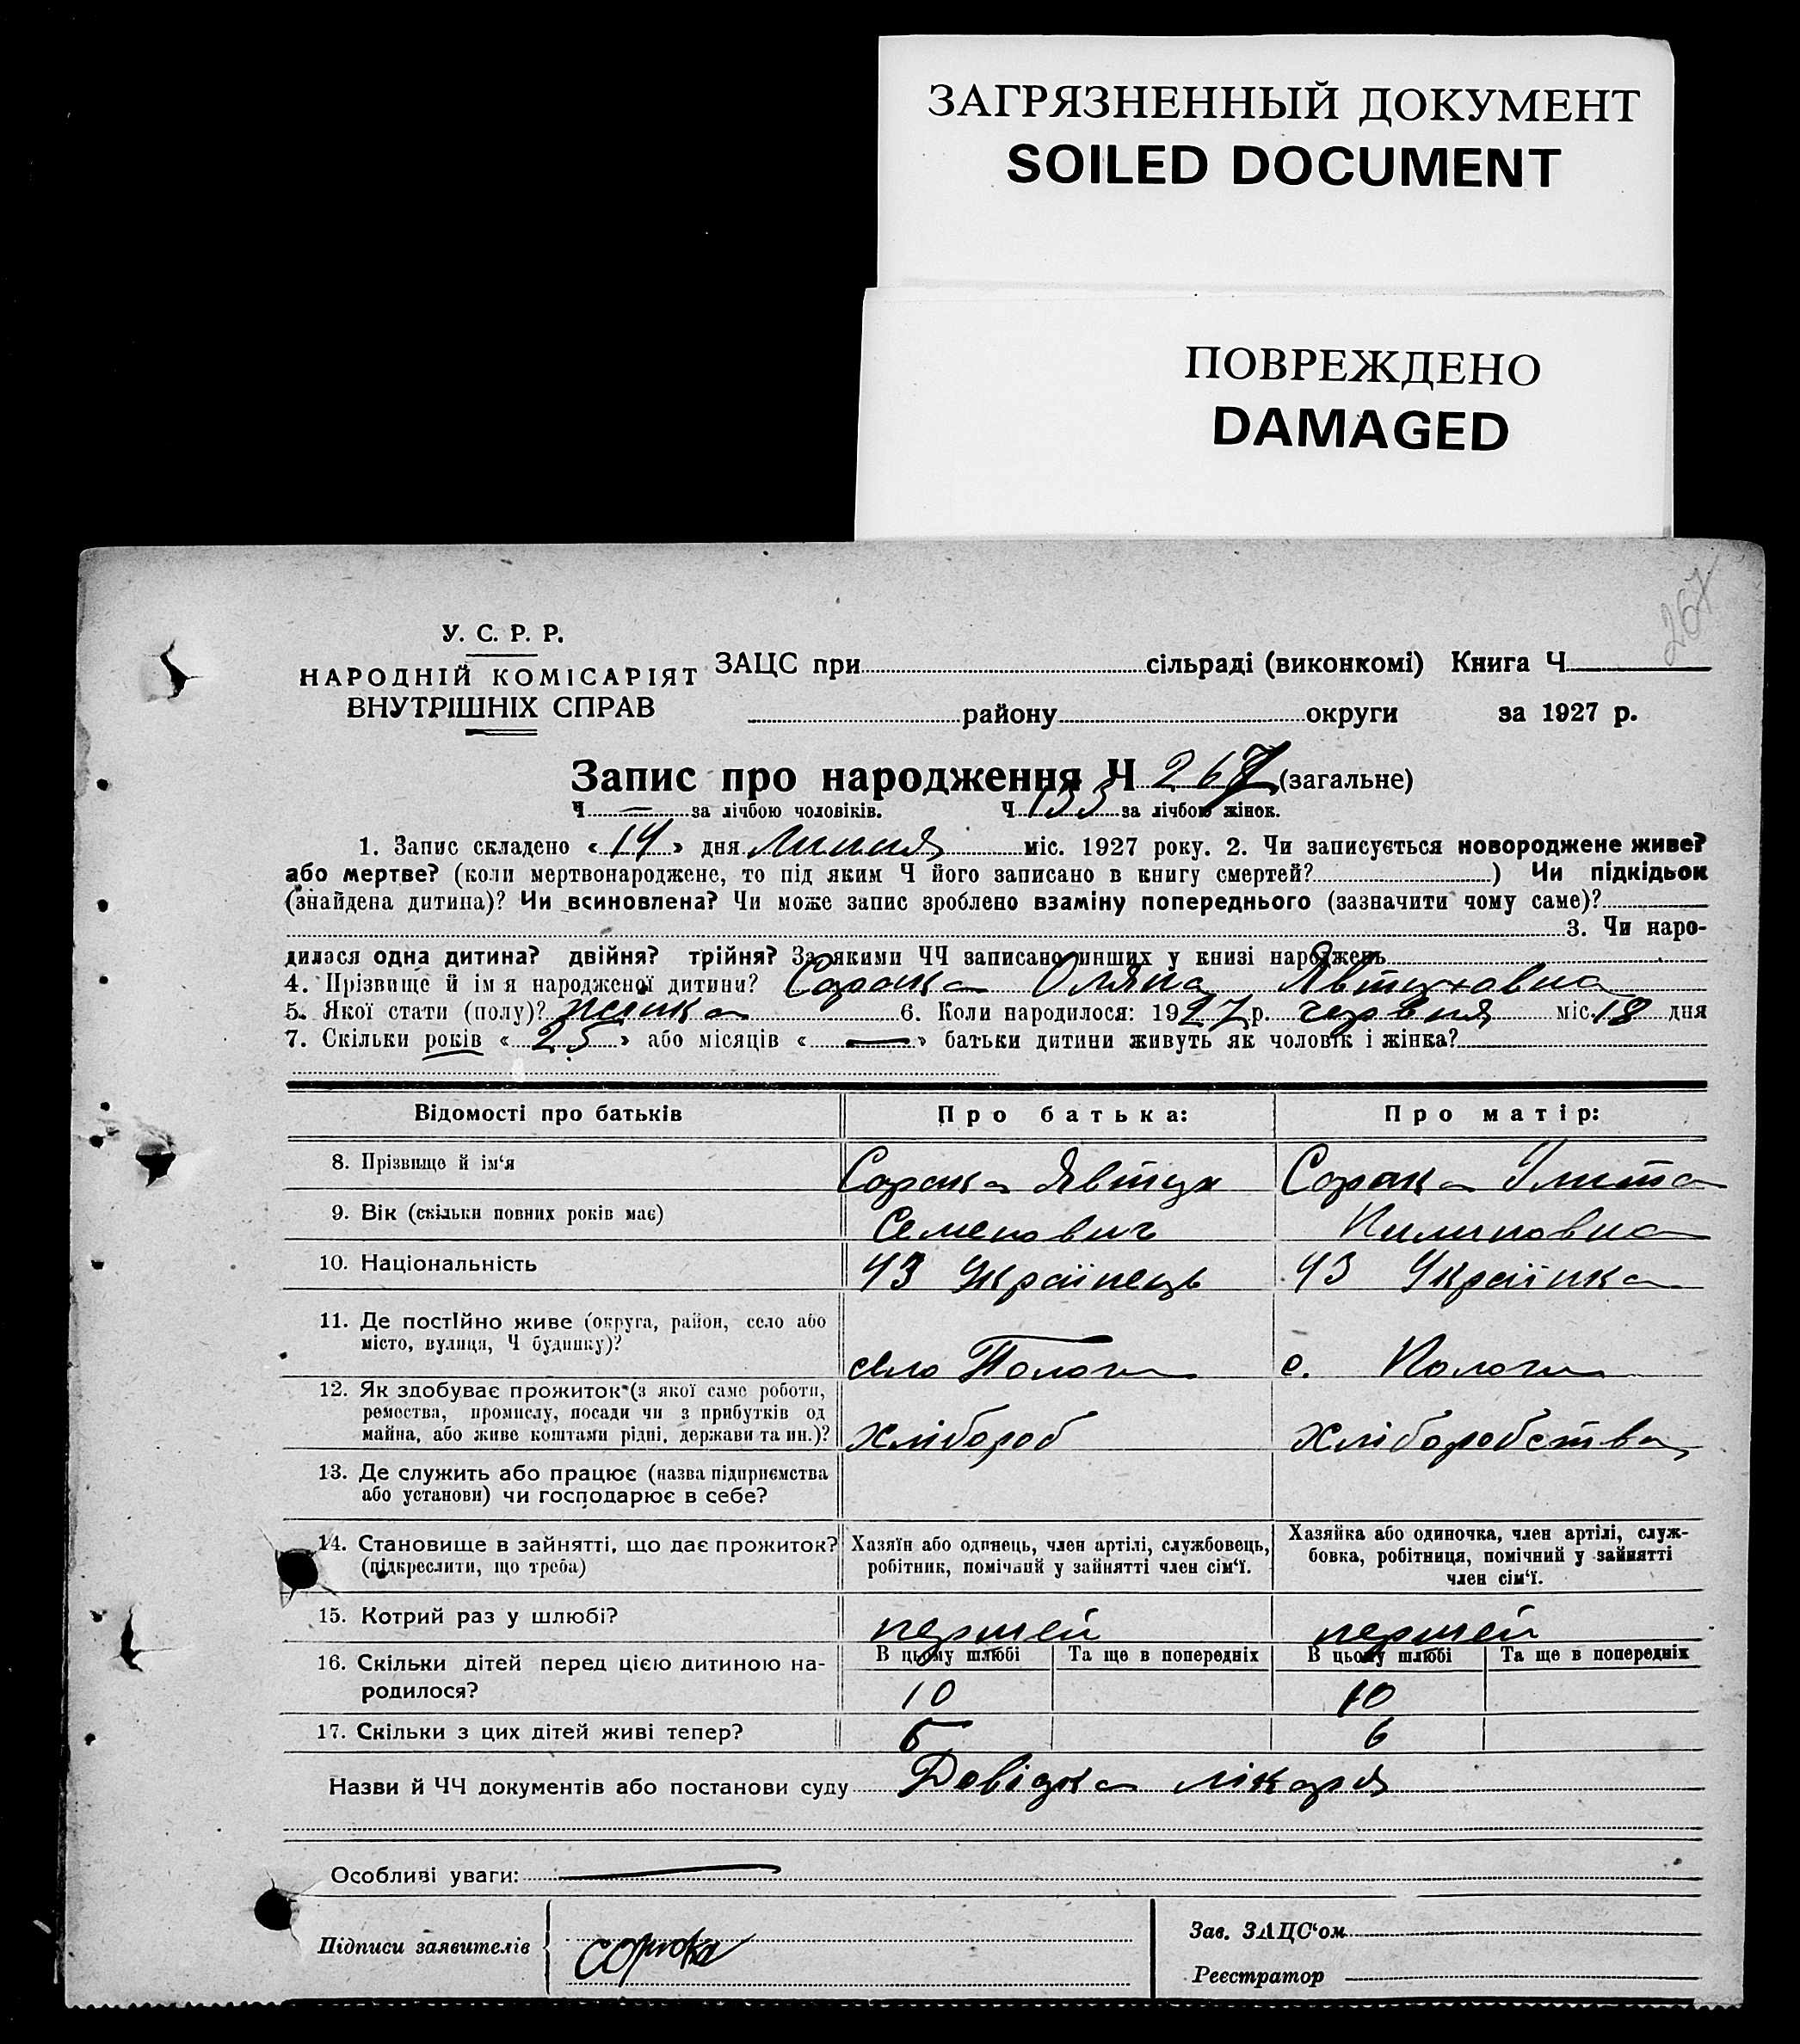 ЗАГРЯЗНЕННЫЙ ДОКУМЕНТ
SOILED DOCUMENT
ПОВРЕЖДЕНО
DAMAGED
267
У. С. Р. Р.
НАРОДНІЙ КОМІСАРІЯТ
ВНУТРІШНІХ СПРАВ
ЗАЦС при сільраді (виконкомі) Книга Ч
району округи за 1927 р.
Запис про народження Ч 267 (загальне)
Ч — за лічбою чоловіків. Ч 133 за лічбою жінок.
1. Запис складено « 14 » дня Липня міс. 1927 року. 2. Чи записується новороджене живе?
або мертве? (коли мертвонароджене, то під яким Ч його записано в книгу смертей? ) Чи підкідьок
(знайдена дитина)? Чи всиновлена? Чи може запис зроблено взаміну попереднього (зазначити чому саме)?
3. Чи наро-
дилася одна дитина? двійня? трійня? За якими ЧЧ записано инших у книзі народжень
4. Прізвище й ім я народженої дитини? Сорока Оляна Явтуховна
5. Якої стати (полу)? жінка 6. Коли народилося: 1927 р. червня міс. 18 дня
7. Скільки років « 25 » або місяців « — » батьки дитини живуть як чоловік і жінка?
Відомості про батьків Про батька: Про матір:
8. Прізвище й ім‘я Сорока Явтух Сорока
9. Вік (скільки повних років має) Семенович Пилиповна
10. Національність 43 Українець 43 Українка
11. Де постійно живе (округа, район, село або
місто, вулиця, Ч будинку)? село Пологи с. Пологи
12. Як здобуває прожиток (з якої саме роботи,
ремества, промислу, посади чи з прибутків од
майна, або живе коштами рідні, держави та ин.)? хлібороб хліборобства
13. Де служить або працює (назва підприємства
або установи) чи господарює в себе?
14. Становище в зайнятті, що дає прожиток?
(підкреслити, що треба)
Хазяїн або одинець, член артілі, службовець,
робітник, помічний у зайнятті член сім‘ї.
Хазяйка або одиночка, член артілі, служ-
бовка, робітниця, помічний у зайнятті
член сім‘ї.
15. Котрий раз у шлюбі? першей першей
16. Скільки дітей перед цією дитиною на-
родилося?
В цьому шлюбі Та ще в попередніх В цьому шлюбі Та ще в попередніх
10 10
17. Скільки з цих дітей живі тепер? 6 6
Назви й ЧЧ документів або постанови суду Довідка лікаря
Особливі уваги: —
Підписи заявителів сорока
Зав. ЗАЦС‘ом
Реєстратор